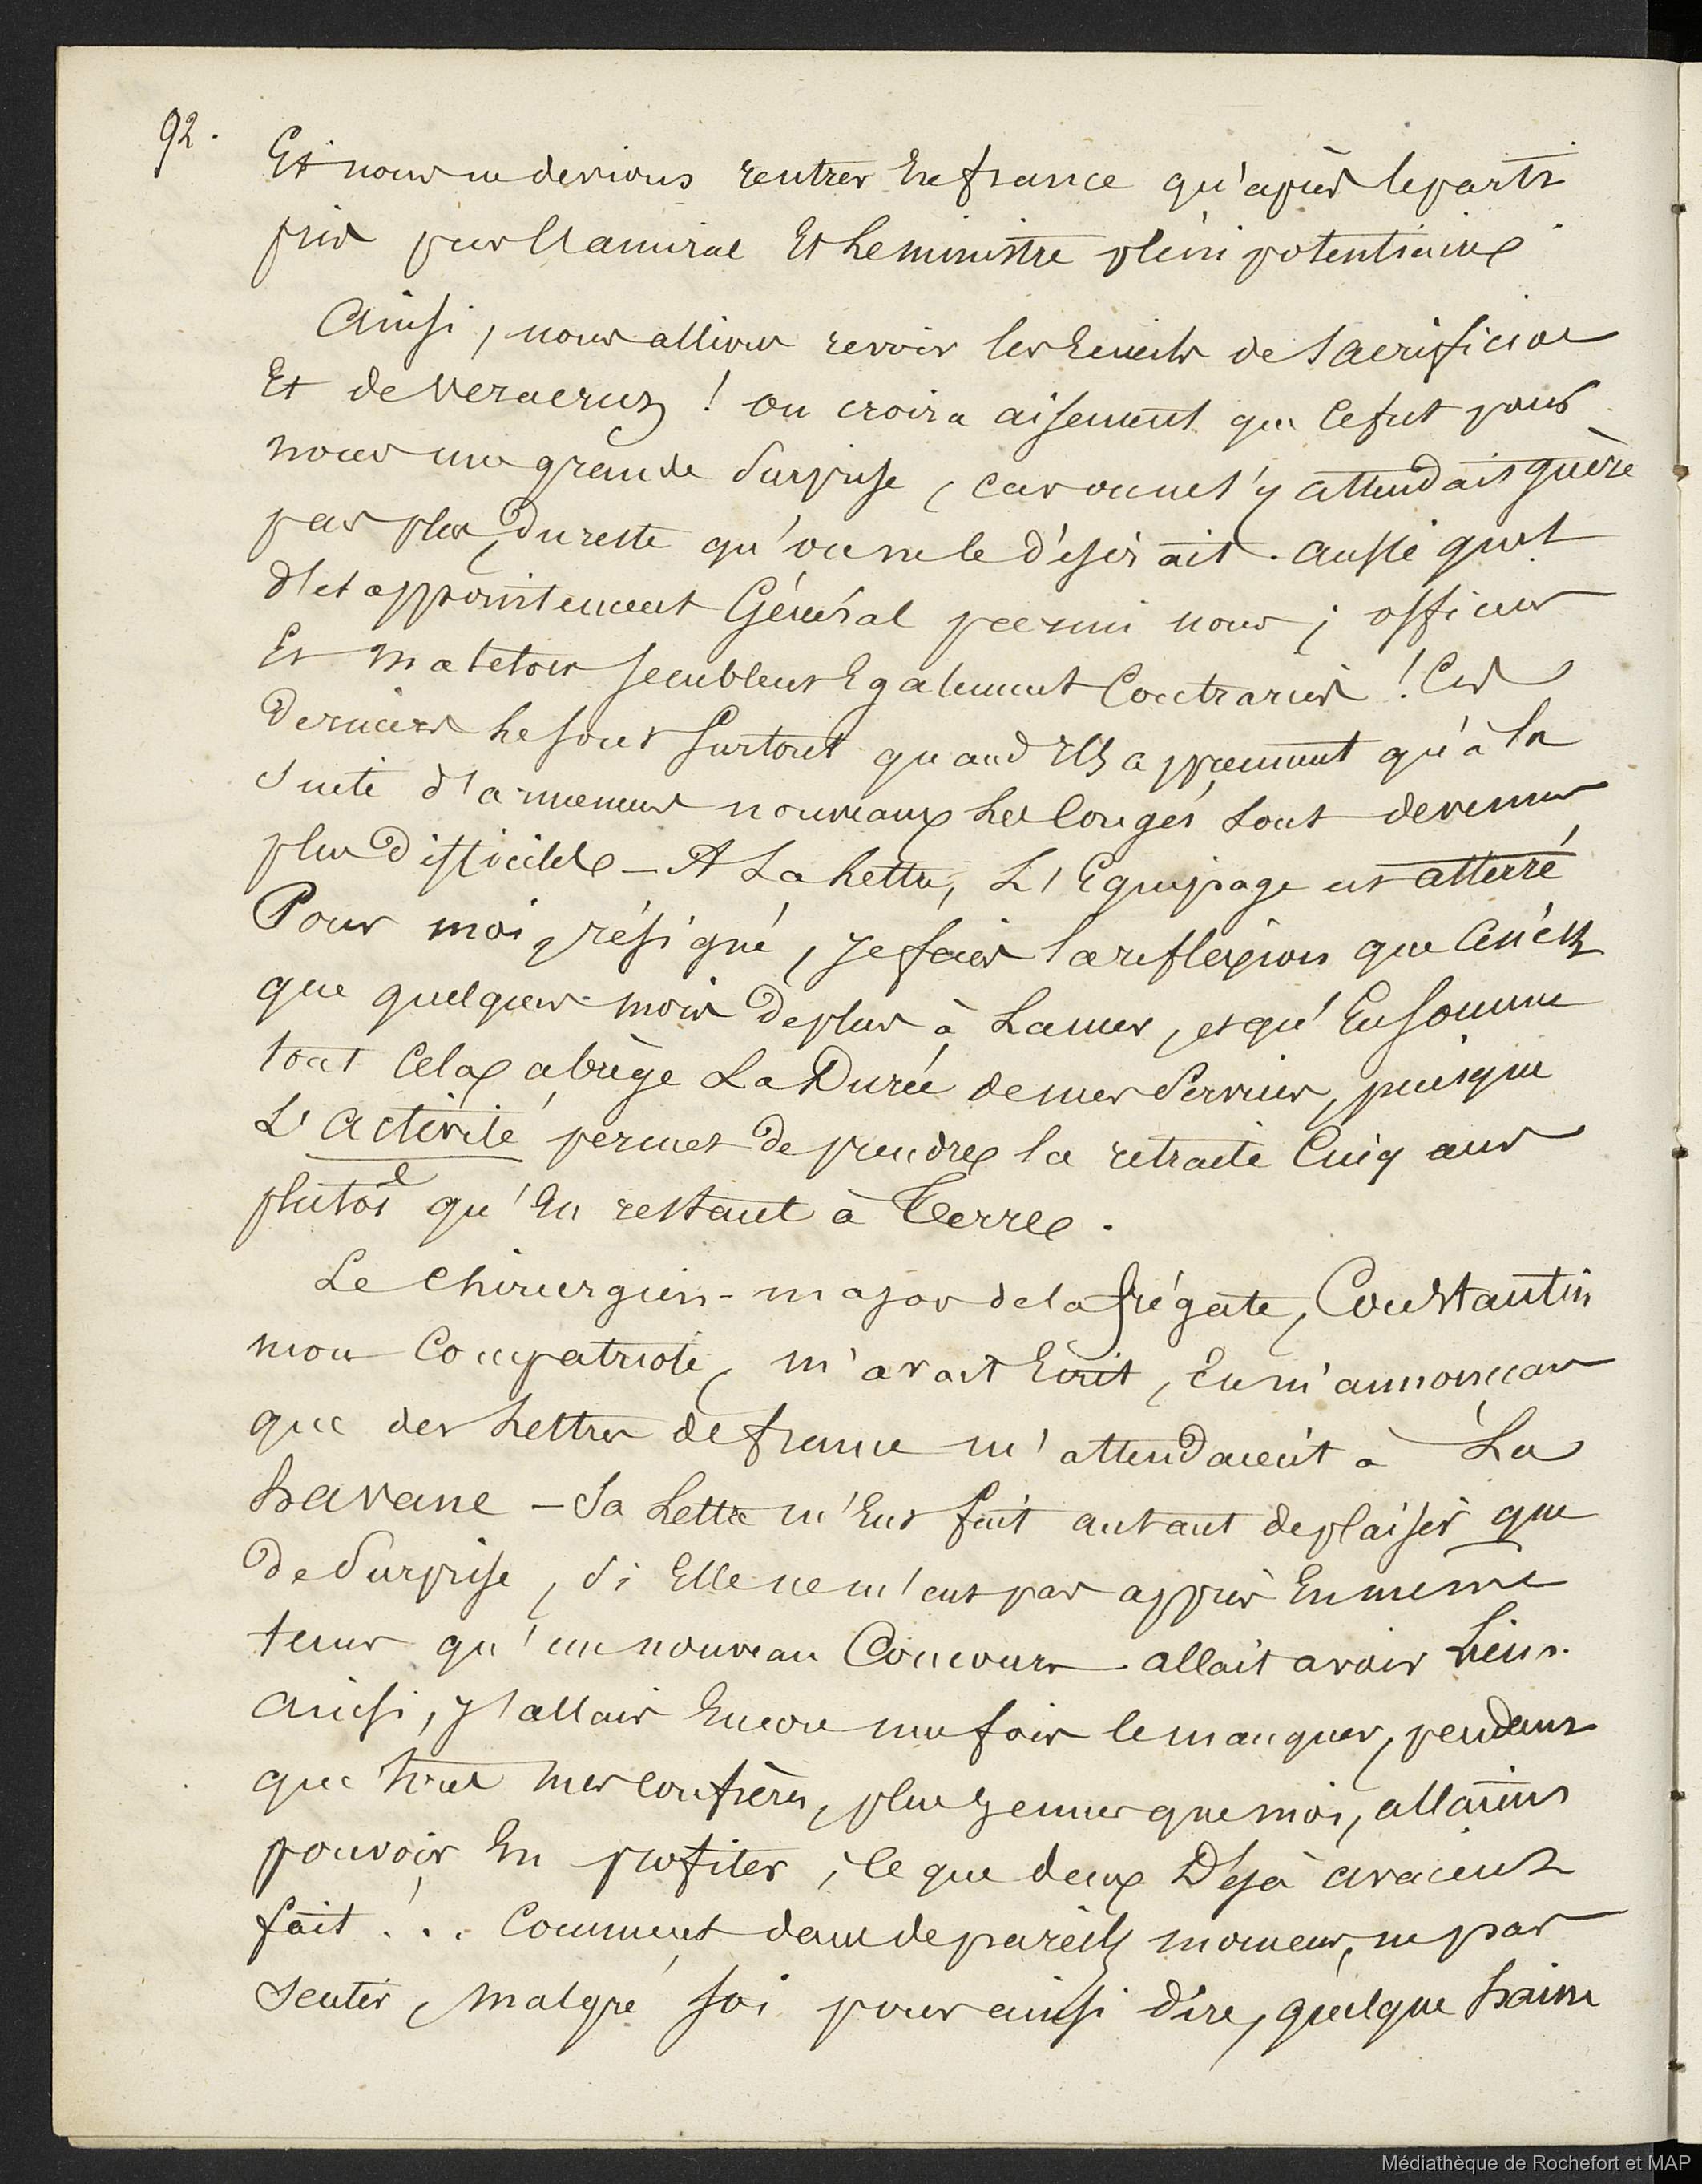 92.
Et nous ne devions rentrer En france qu'après le parti
pris par l'amiral Et Le ministre pléni potentiaire
Ainsi, nous allions revoir les Ecueils de Sacrificios
Et de Veracruz ! on croira aisement que Ce fut pour
nous une grande Surprise, car on ne s'y attendait guère
pas plus, Du reste qu'on ne le désirait. aussi quel
d'ésappointement Général parmi nous ; officiers
Et matelots semblent Egalement Contrariés ! Ces
Derniers Le sont surtout quand Ils apprennent qu'à la
Suite d'armemens nouveaux Les Congés sont devenus
plus Difficiles – A La Lettre, L'Equipage est atterré
Pour moi, résigné, Je fais la reflexion que Ce n'est
que quelques mois De plus à La mer, et qu'En somme
tout Cela abrège La Durée de mes Services, puisque
L'activité permet De prendre la retraite Cinq ans
plutôt qu'En restant à Terre.
Le Chirurgien-major de la frégate, Constantin
mon Compatriote, m'avait Ecrit, En m'annonçant
que des Lettres de france m'attendaient à La
havane – Sa Lettre m'Eut fait autant de plaisir que
De Surprise, Si Elle ne m'eut pas appris En même
tems qu'un nouveau Concours allait avoir Lieu.
Ainsi, J'allais Encore une fois le manquer, pendant
que tous mes Confrères, plus Jeunes que moi, allaient
pouvoir En profiter, Ce que deux Déjà avaient
fait ! .. Comment dans de pareils momens, ne pas
Sentir, malgré soi pour ainsi dire, quelque haine
Médiathèque de Rochefort et MAP